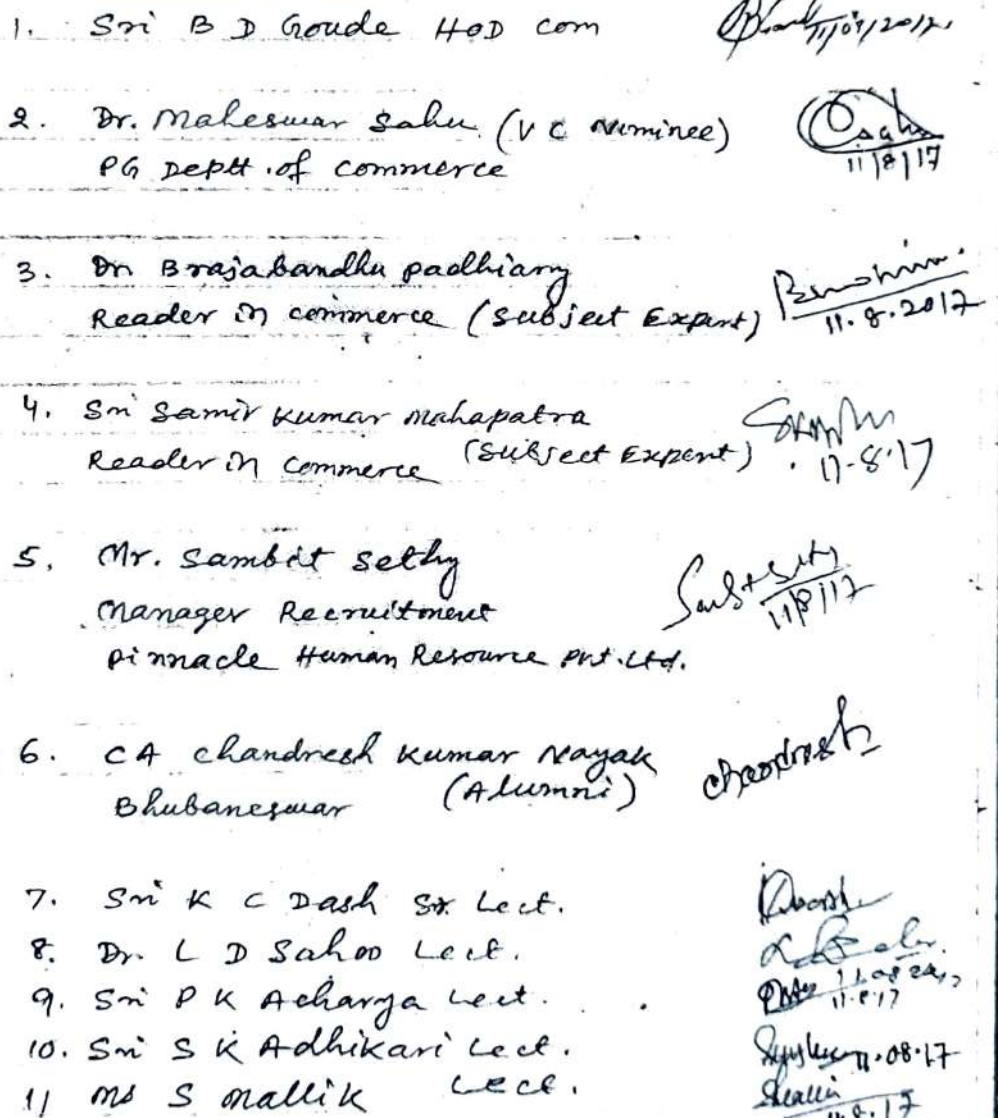 1. Sri B D Goude HOD com 11/08/2017
2. Dr. Maheswar Sahu (V C Nominee) Sahu
PG Deptt. of commerce 11/8/17
3. Dr Brajabandhu padhiary
Reader in commerce (Subject Expert) 11.8.2017
4. Sri Samir Kumar Mahapatra
Reader in Commerce (Subject Expert) 11.8.17
5. Mr. Sambit Sethy
Manager Recruitment 11/8/17
Pinnacle Human Resource Pvt. Ltd.
6. CA Chandresh Kumar Nayak Chandresh
Bhubaneswar (Alumni)
7. Sri K C Dash Sr. Lect.
8. Dr. L D Sahoo Lect.
9. Sri P K Acharya Lect. 11.8.17
10. Sri S K Adhikari Lect. 11.08.17
11 Ms S Mallik Lect. 11.8.17